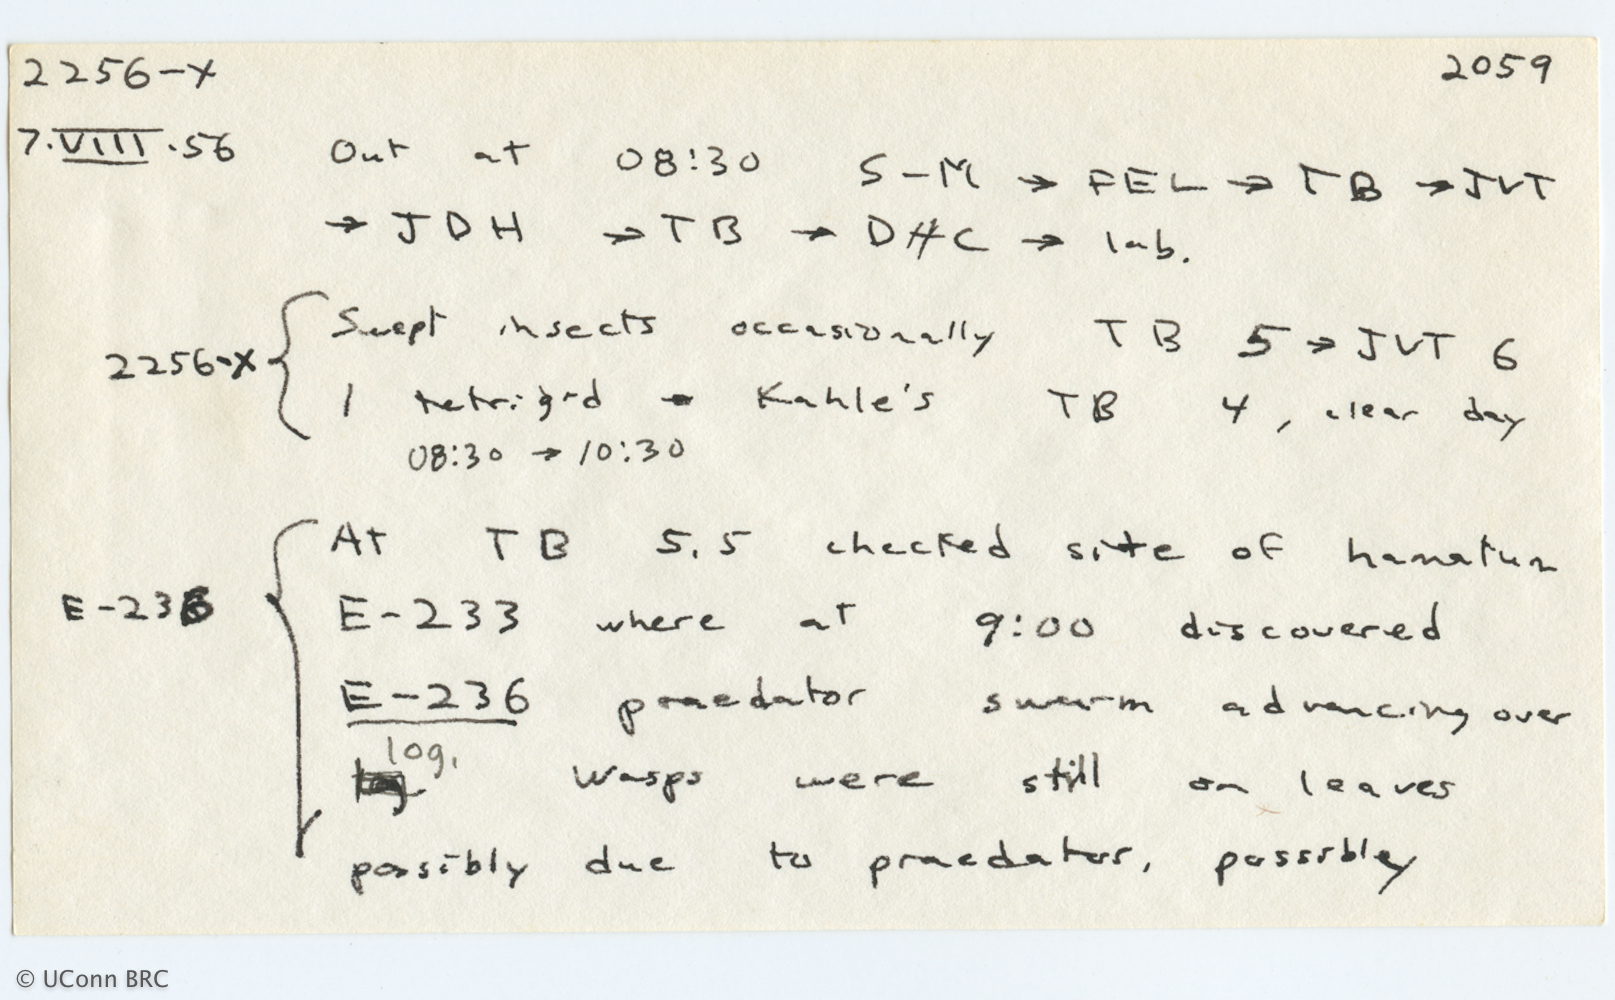 2256-X 2059
7.VIII.56 Out at 08:30 S-M → FEL → TB → JVT
→ JDH → TB → DHC → lab.
2256-X { Swept insects occasionally TB 5 → JVT 6
1 tetrigid → Kahle's TB 4, clear day
08:30 → 10:30
E-236 { At TB 5.5 checked site of hamatum
E-233 where at 9:00 discovered
E-236 praedator swarm advancing over
log. Wasps were still on leaves
possibly due to praedator, possibly
© UConn BRC